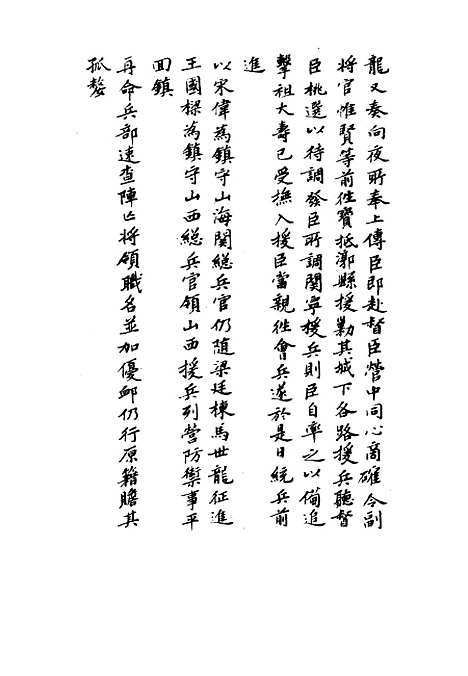 龍又奏向夜所奉上傳臣即赴督臣營中同心商確令副
將官惟賢等前徃寳抵漷縣援勦其城下各路援兵聽督
臣桃選以待調發臣所調関寧援兵則臣自率之以備追
擊祖大壽已受撫入援臣當親徃會兵遂於是日統兵前
進
以宋偉為鎮守山海関緫兵官仍随梁廷棟馬世龍征進
王國樑為鎮守山西緫兵官領山西援兵列營防禦事平
回鎮
再命兵部速查陣亡將領職名並加優邮仍行原籍贍其
孤嫠